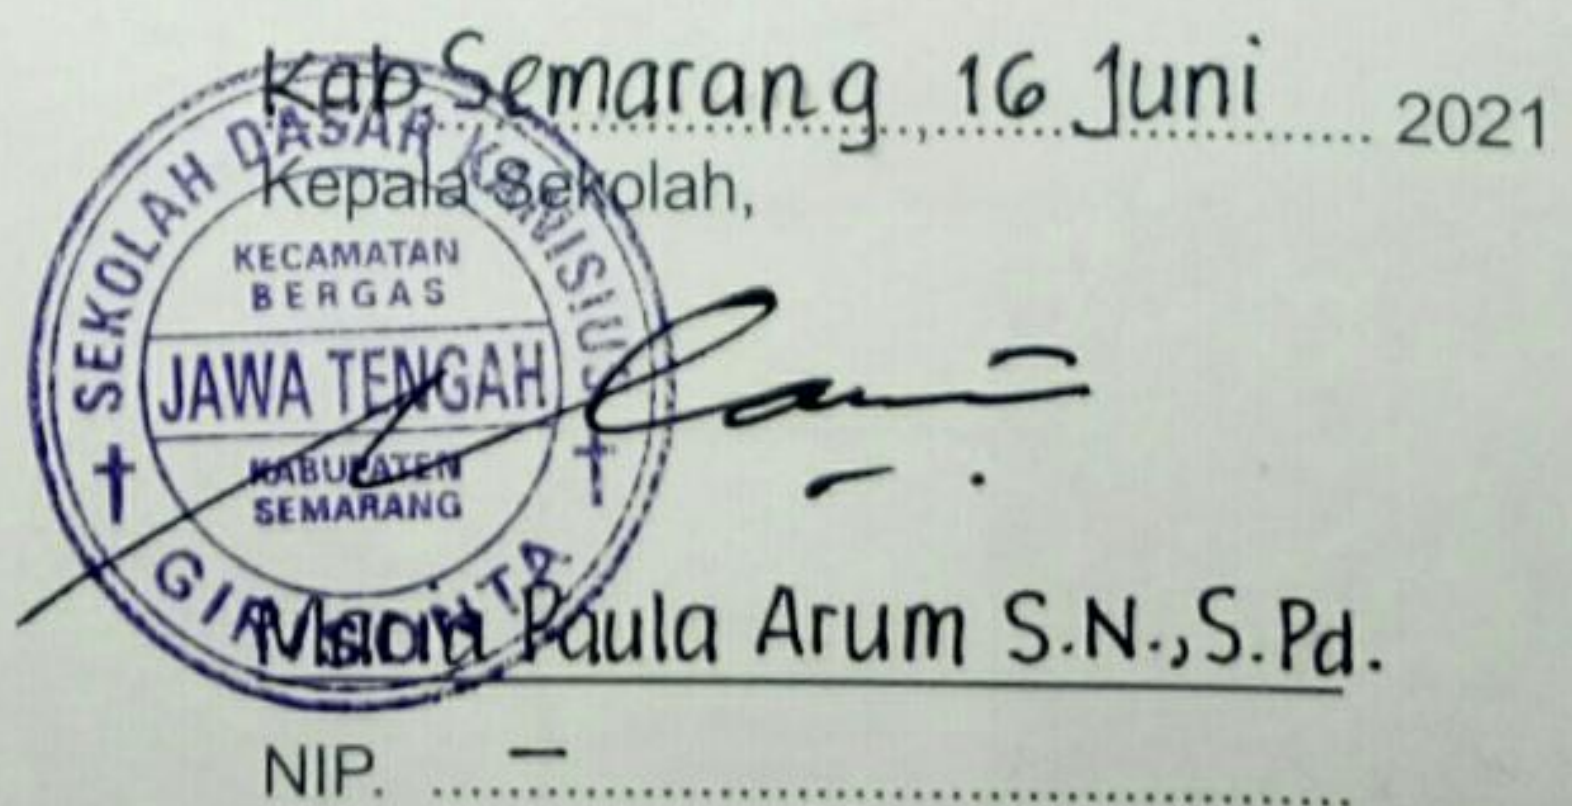 Kab Semarang, 16 Juni 2021
Kepala Sekolah,
SEKOLAH DASAR KANISIUS
KECAMATAN
BERGAS
JAWA TENGAH
KABUPATEN
SEMARANG
GIRISONTA
Maria Paula Arum S.N., S.Pd.
NIP. –